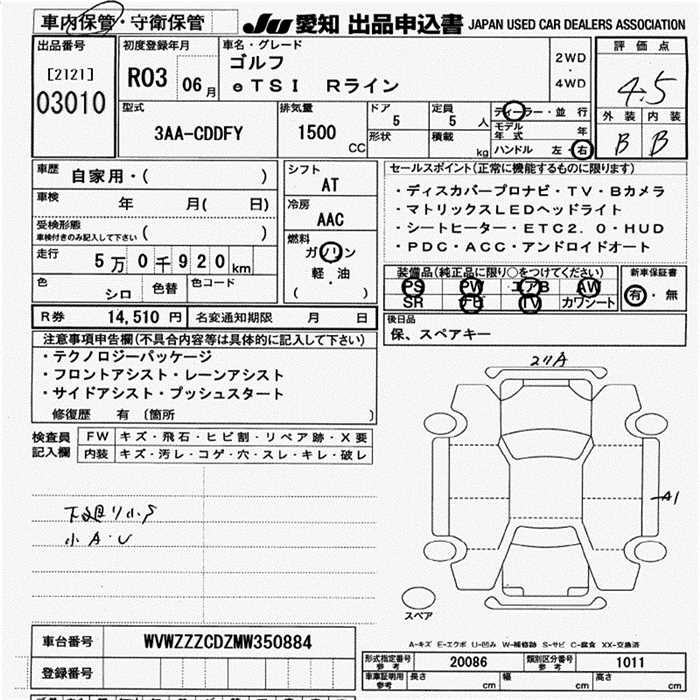 車内保管・守衛保管 JU 愛知 出品申込書 JAPAN USED CAR DEALERS ASSOCIATION
出品番号 初度登録年月 車名・グレード 評価点
[2121] R03 06月 ゴルフ 2WD
03010 eTSI Rライン ・ 4WD 4.5
型式 排気量 ドア 定員 ディーラー・並行 外装 内装
3AA-CDDFY 1500 CC 5 5人 モデル年式 年 B B
形状 積載 kg ハンドル 左・右
車歴 自家用・( ) シフト AT セールスポイント(正常に機能するものに限ります)
車検 年 月( 日) 冷房 AAC ・ディスカバープロナビ・TV・Bカメラ
受検形態 車検付きのみ記入して下さい ( ) ・マトリックスLEDヘッドライト
走行 5万0千920km 燃料 ガソリン ・シートヒーター・ETC2.0・HUD
軽・油 ・PDC・ACC・アンドロイドオート
( )
色 シロ 色替 色コード 装備品(純正品に限り○をつけてください) 新車保証書
PS PW エアB AW 有・無
SR TV カワシート
R券 14,510円 名変通知期限 月 日 後日品
保、スペアキー
注意事項申告欄(不具合内容等は具体的に記入して下さい)
・テクノロジーパッケージ
・フロントアシスト・レーンアシスト
・サイドアシスト・プッシュスタート
修復歴 有 〔箇所 〕
検査員記入欄 FW キズ・飛石・ヒビ割・リペア跡・X要
内装 キズ・汚レ・コゲ・穴・スレ・キレ・破レ
下廻り小S
小A・U
A1
スペア
A-キズ E-エクボ U-凹み W-補修跡 S-サビ C-腐食 XX-交換済
車台番号 WVWZZZCDZMW350884
登録番号
形式指定番号 参考 20086 類別区分番号 参考 1011
車庫証明用 参考 長さ cm 幅 cm 高さ cm